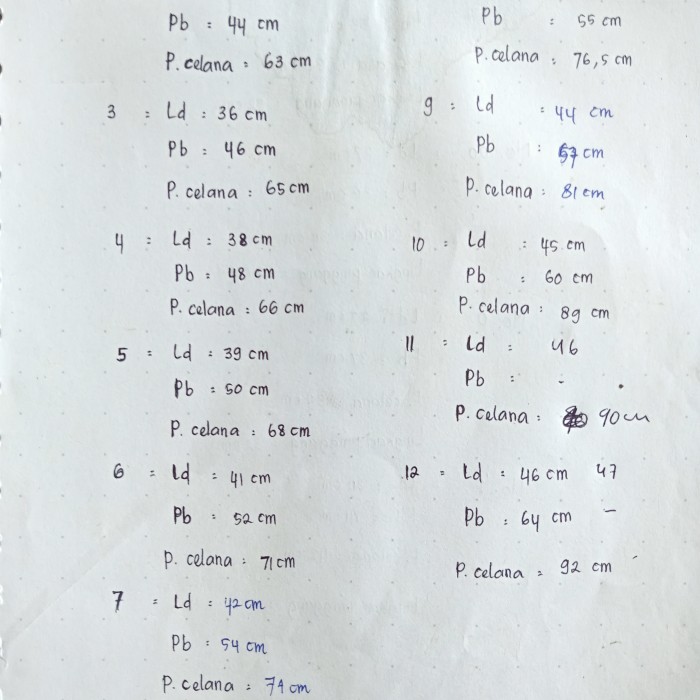 Pb : 44 cm
P. celana : 63 cm
3 = Ld : 36 cm
Pb : 46 cm
P. celana : 65 cm
4 = Ld : 38 cm
Pb : 48 cm
P. celana : 66 cm
5 = Ld : 39 cm
Pb : 50 cm
P. celana : 68 cm
6 = Ld : 41 cm
Pb : 52 cm
P. celana : 71 cm
7 = Ld : 42 cm
Pb : 54 cm
P. celana : 74 cm
Pb : 55 cm
P. celana : 76,5 cm
9 : Ld : 44 cm
Pb : 57 cm
P. celana : 81 cm
10 = Ld : 45 cm
Pb : 60 cm
P. celana : 89 cm
11 = Ld : 46
Pb : -
P. celana : 90 cm
12 = Ld : 46 cm 47
Pb : 64 cm -
P. celana = 92 cm